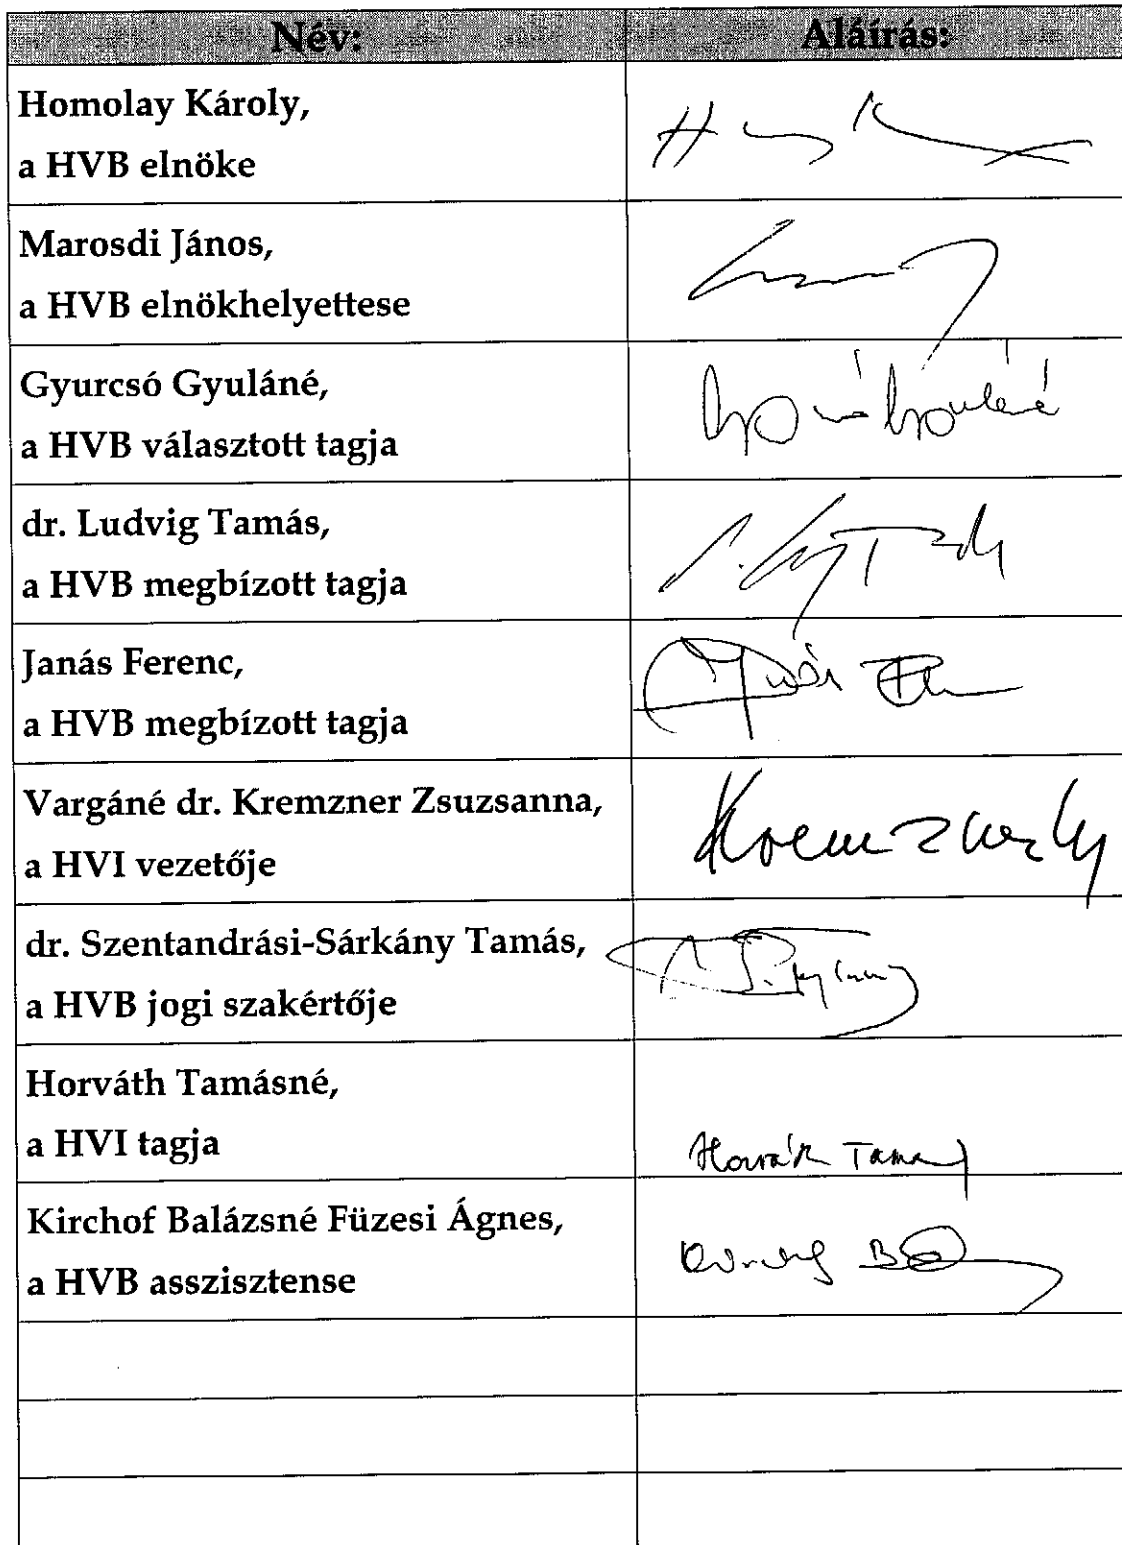 Név: Aláírás:
Homolay Károly,
a HVB elnöke
Marosdi János,
a HVB elnökhelyettese
Gyurcsó Gyuláné,
a HVB választott tagja
dr. Ludvig Tamás,
a HVB megbízott tagja
Janás Ferenc,
a HVB megbízott tagja
Vargáné dr. Kremzner Zsuzsanna,
a HVI vezetője
dr. Szentandrási-Sárkány Tamás,
a HVB jogi szakértője
Horváth Tamásné,
a HVI tagja
Kirchof Balázsné Füzesi Ágnes,
a HVB asszisztense